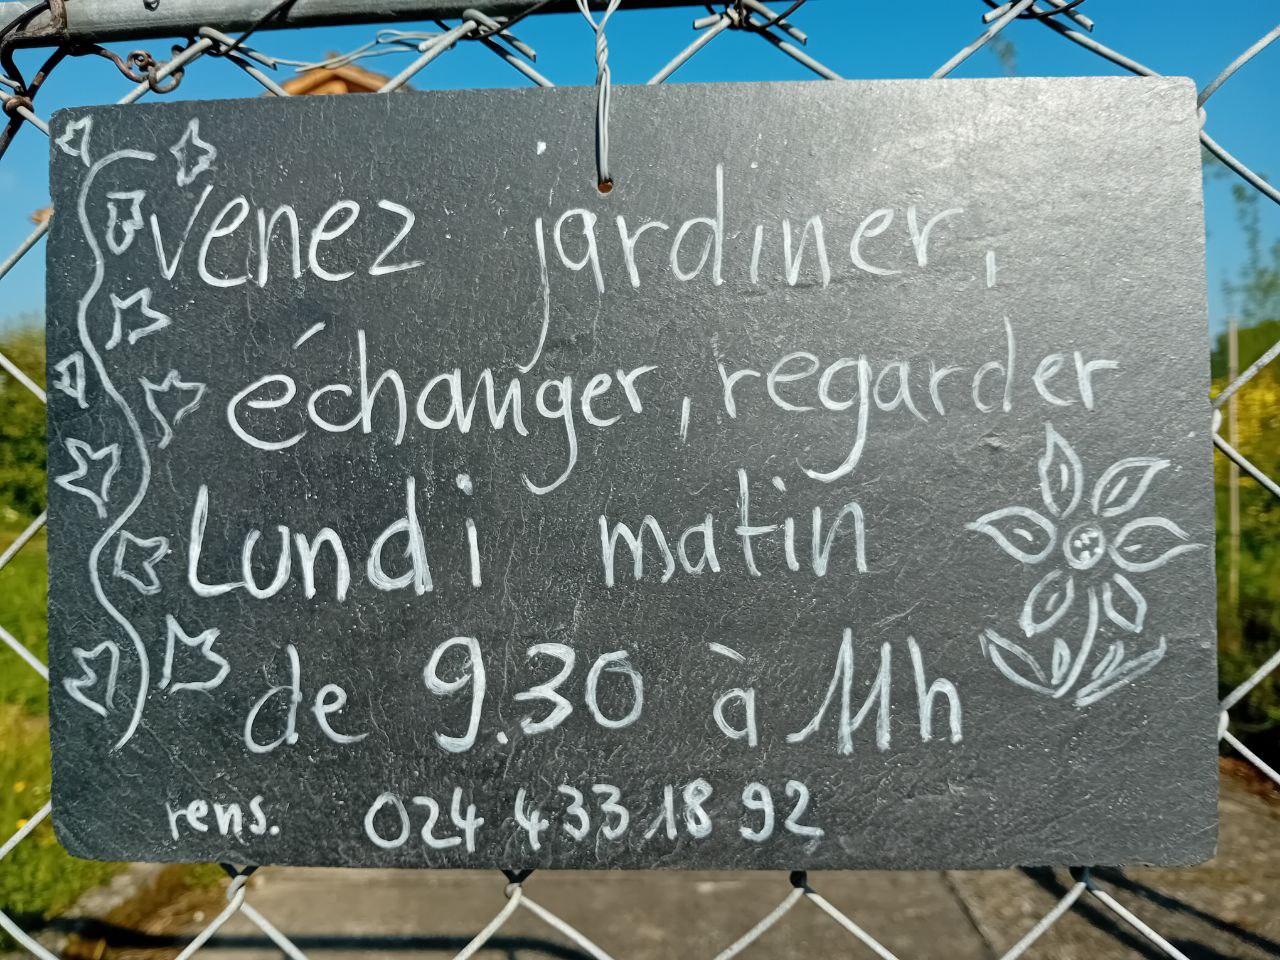 Venez jardiner,
échanger, regarder
Lundi matin
de 9.30 à 11h
rens. 024 433 18 92